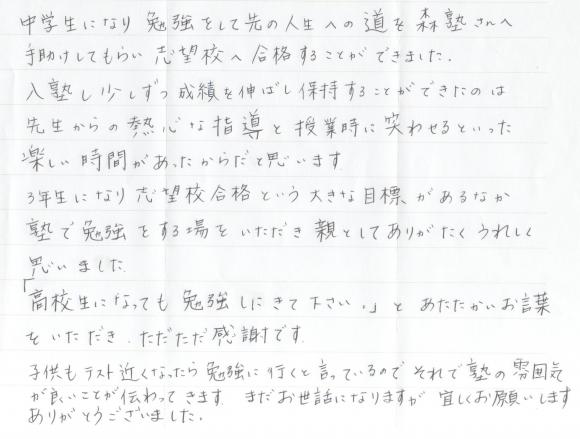 中学生になり 勉強をして先の人生への道を森塾さんへ
手助けしてもらい志望校へ合格することができました.
入塾し少しずつ成績を伸ばし保持することができたのは
先生からの熱心な指導と授業時に笑わせるといった
楽しい時間があったからだと思います
3年生になり志望校合格という大きな目標、があるなか
塾で勉強をする場をいただき親としてありがたくうれしく
思いました.
「高校生になっても勉強しにきて下さい.」とあたたかいお言葉
をいただき.ただただ感謝です.
子供もテスト近くなったら勉強に行くと言っているのでそれで塾の雰囲気
が良いことが伝わってきます まだお世話になりますが宜しくお願いします
ありがとうございました.